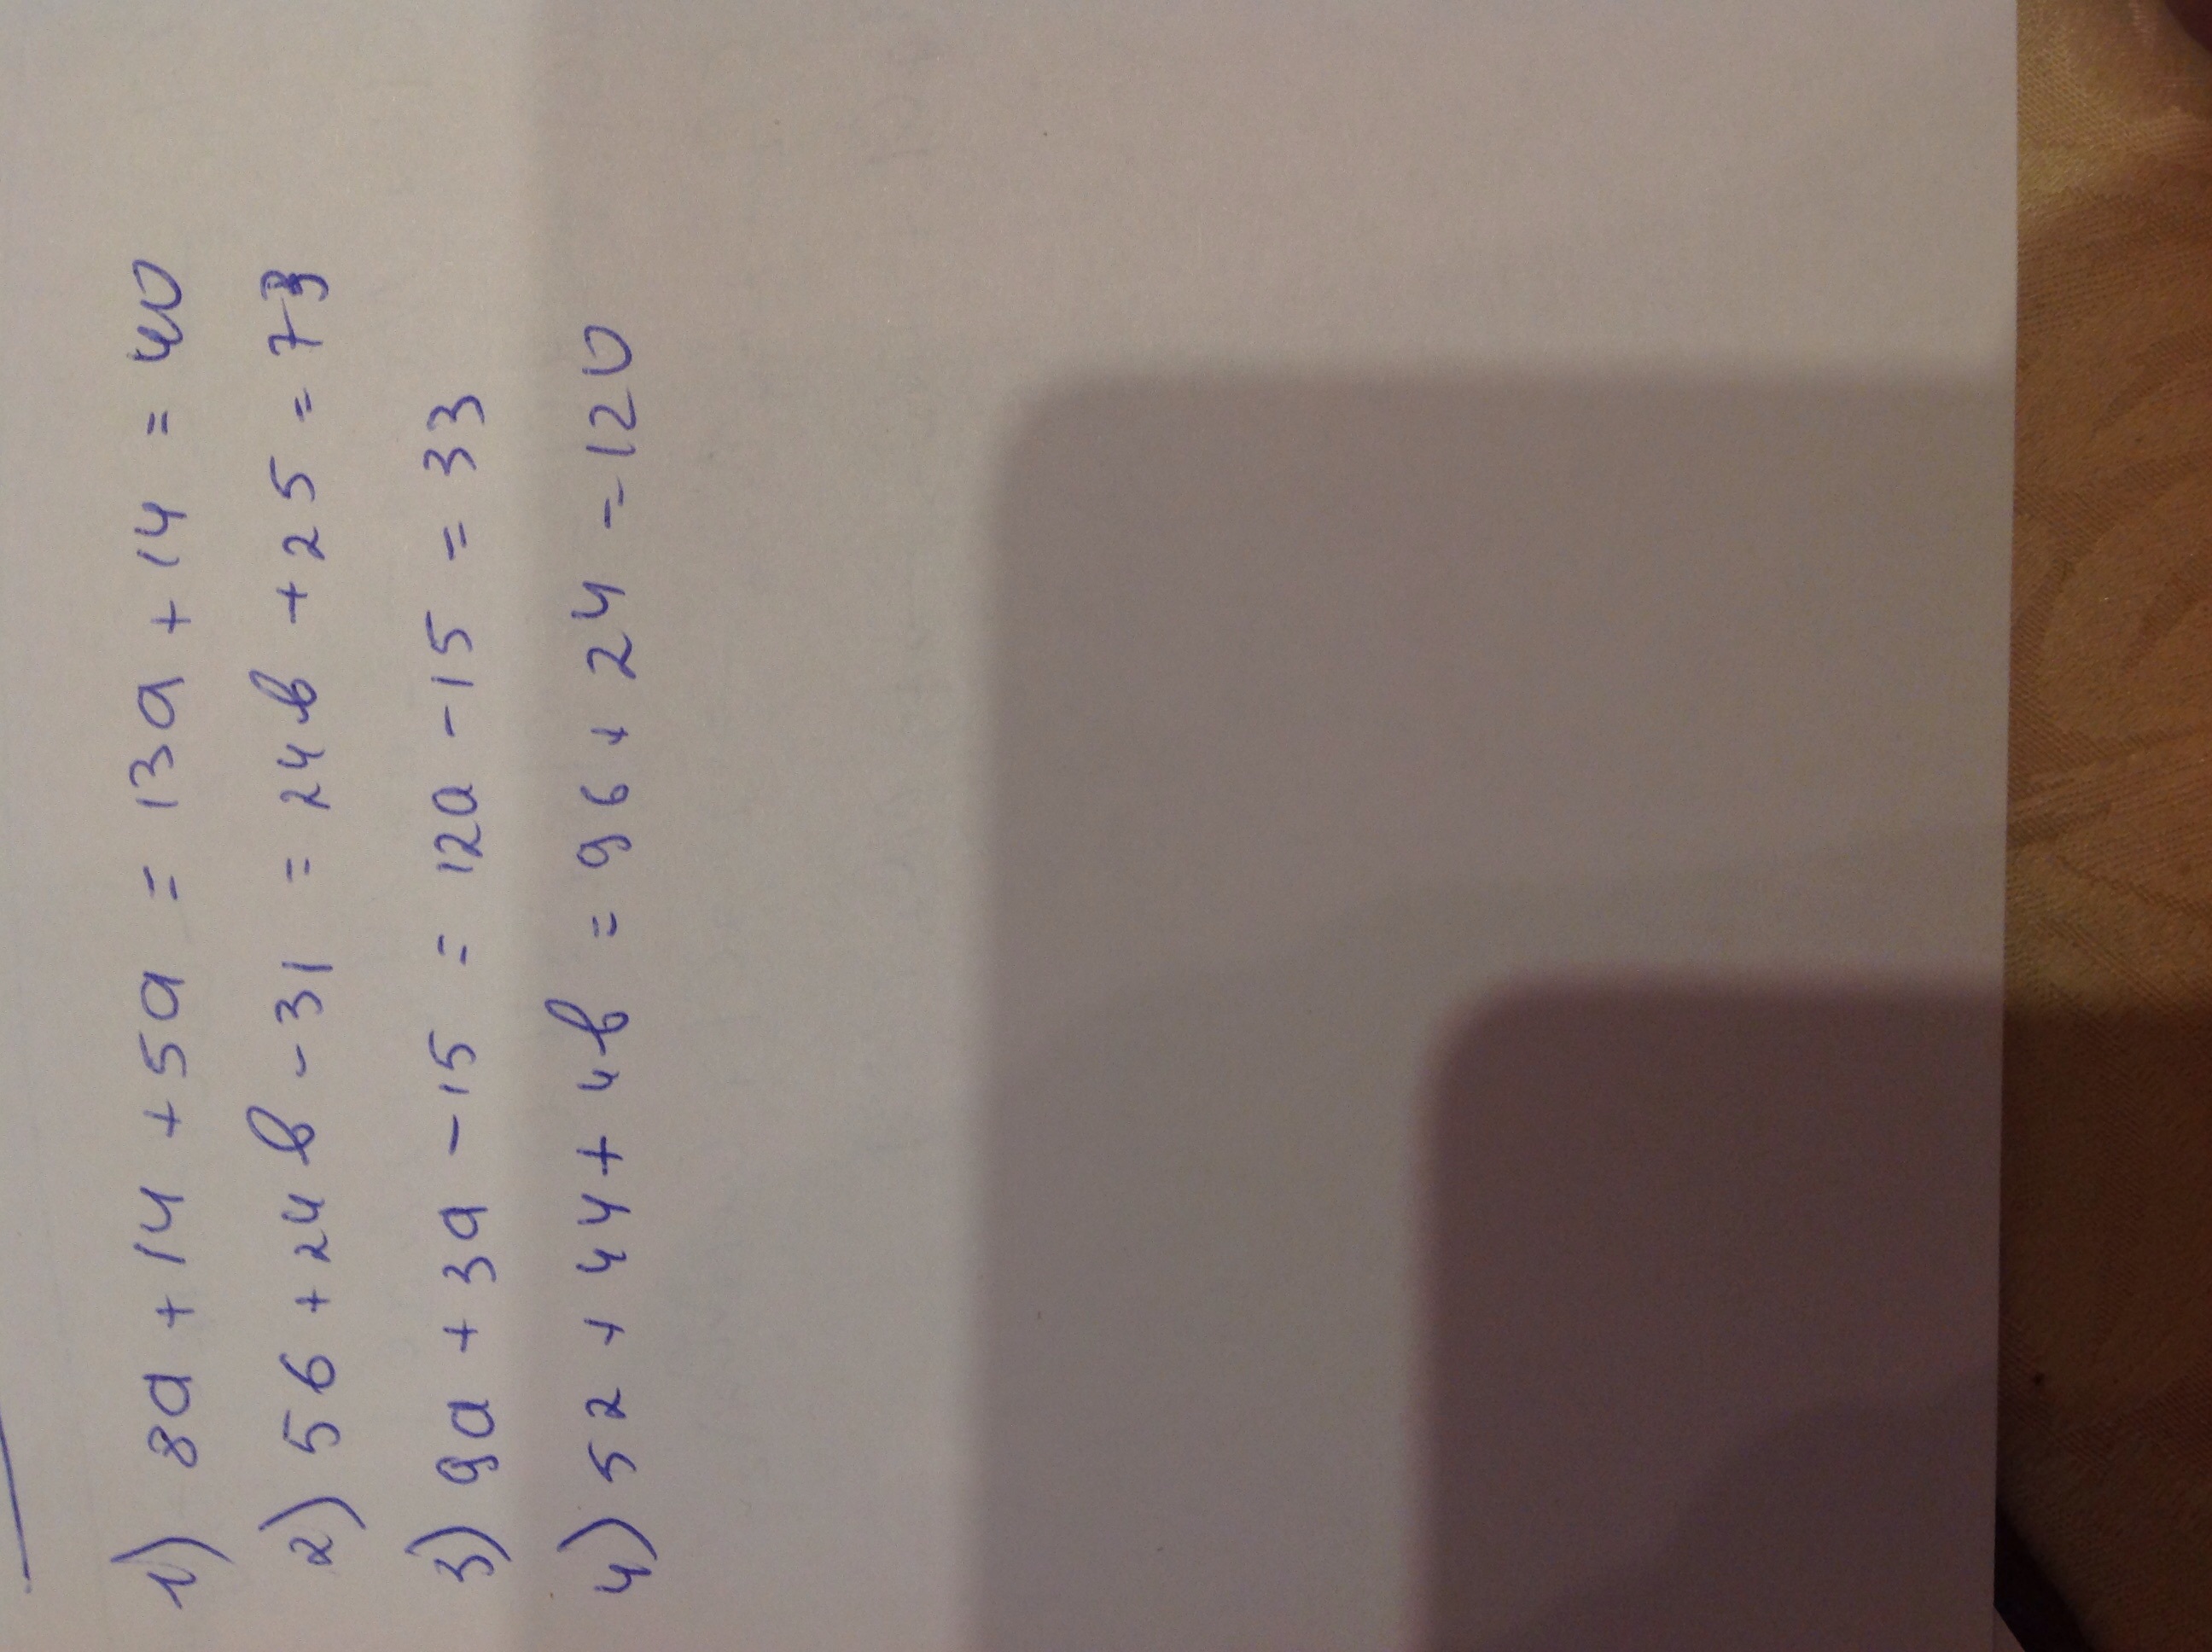 1) 8a + 14 + 5a = 13a + 14 = 40
2) 56 + 24b - 31 = 24b + 25 = 73
3) 9a + 3a - 15 = 12a - 15 = 33
4) 52 + 44 + 4b = 96 + 24 = 120